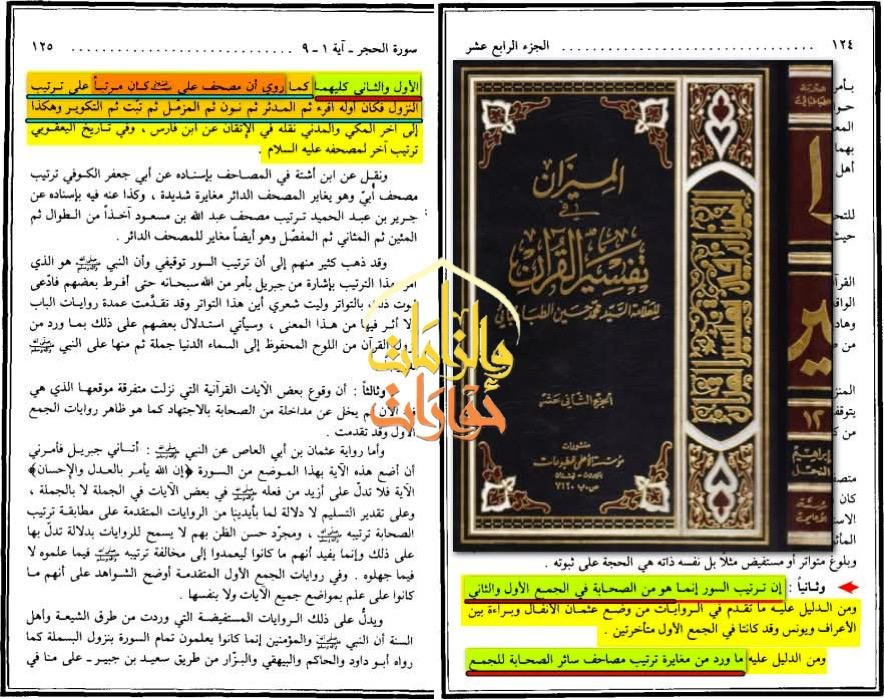 ١٢٤
الجزء الرابع عشر
الميزان
في
تفسير القرآن
للعلامة السيد محمد حسين الطباطبائي
الجزء الثاني عشر
منشورات
مؤسسة الأعلمي للمطبوعات
بيروت - لبنان
ص.ب ٧١٢٠
١٢
إبراهيم
النحل
وبلوغ متواتر أو مستفيض مثلاً بل نفسه ذاته هي الحجة على ثبوته .
وثانياً : إن ترتيب السور إنما هو من الصحابة في الجمع الأول والثاني
ومن الدليل عليه ما تقدم في الروايات من وضع عثمان الأنفال وبراءة بين
الأعراف ويونس وقد كانتا في الجمع الأول متأخرتين .
ومن الدليل عليه ما ورد من مغايرة ترتيب مصاحف سائر الصحابة للجمع
سورة الحجر ـ آية ١ ـ ٩
١٢٥
الأول والثاني كليهما كما روي أن مصحف علي كان مرتباً على ترتيب
النزول فكان أوله اقرء ثم المدثر ثم نون ثم المزمّل ثم تبّت ثم التكوير وهكذا
إلى آخر المكي والمدني نقله في الإتقان عن ابن فارس ، وفي تاريخ اليعقوبي
ترتيب آخر لمصحفه عليه السلام .
ونقل عن ابن أشتة في المصاحف بإسناده عن أبي جعفر الكوفي ترتيب
مصحف أُبيّ وهو يغاير المصحف الدائر مغايرة شديدة ، وكذا عنه فيه بإسناده عن
جرير بن عبد الحميد ترتيب مصحف عبد الله بن مسعود آخذاً من الطوال ثم
المئين ثم المثاني ثم المفصّل وهو أيضاً مغاير للمصحف الدائر .
وقد ذهب كثير منهم إلى أن ترتيب السور توقيفي وأن النبي ﷺ هو الذي
أمر بهذا الترتيب بإشارة من جبريل بأمر من الله سبحانه حتى أفرط بعضهم فادّعى
ثبوت ذلك بالتواتر وليت شعري أين هذا التواتر وقد تقدّمت عمدة روايات الباب
ولا أثر فيها من هذا المعنى ، وسيأتي استدلال بعضهم على ذلك بما ورد من
نزول القرآن من اللوح المحفوظ إلى السماء الدنيا جملة ثم منها على النبي ﷺ
وثالثاً : أن وقوع بعض الآيات القرآنية التي نزلت متفرقة موقعها الذي هي
فيه الآن لم يخل عن مداخلة من الصحابة بالاجتهاد كما هو ظاهر روايات الجمع
الأول وقد تقدمت .
وأما رواية عثمان بن أبي العاص عن النبي ﷺ : أتاني جبريل فأمرني
أن أضع هذه الآية بهذا الموضع من السورة ﴿إن الله يأمر بالعدل والإحسان﴾
الآية فلا تدلّ على أزيد من فعله ﷺ في بعض الآيات في الجملة لا بالجملة ،
وعلى تقدير التسليم لا دلالة لما بأيدينا من الروايات المتقدمة على مطابقة ترتيب
الصحابة ترتيبه ﷺ ، ومجرّد حسن الظن بهم لا يسمح للروايات بدلالة تدلّ بها
على ذلك وإنما يفيد أنهم ما كانوا ليعمدوا إلى مخالفة ترتيبه ﷺ فيما علموه لا
فيما جهلوه . وفي روايات الجمع الأول المتقدمة أوضح الشواهد على أنهم ما
كانوا على علم بمواضع جميع الآيات ولا بنفسها .
ويدلّ على ذلك الروايات المستفيضة التي وردت من طرق الشيعة وأهل
السنة أن النبي ﷺ والمؤمنين إنما كانوا يعلمون تمام السورة بنزول البسملة كما
رواه أبو داود والحاكم والبيهقي والبزّار من طريق سعيد بن جبير ـ على ما في
حوارات
والزامات